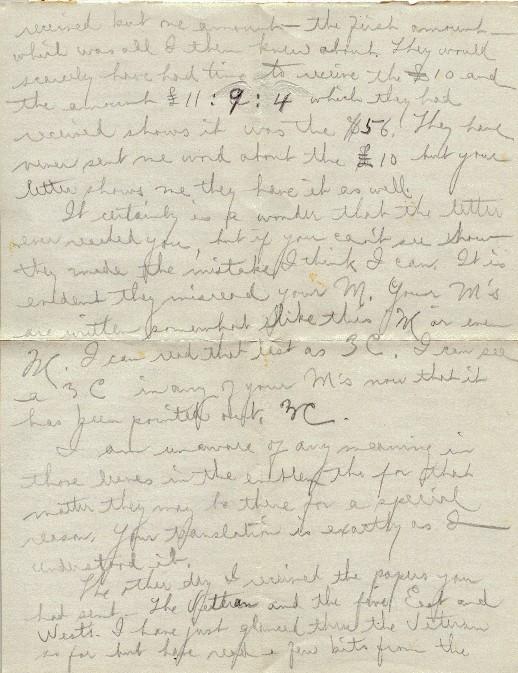 received but one amount — the first amount —
what was all I then knew about. They would
scarcely have had time to receive the £10 and
the amount £11:9:4 which they had
received shows it was the $56. They have
never sent me word about the £10 but your
letter shows me they have it as well.
It certainly is a wonder that the letter
ever reached you, but if you can't see how
they made the mistake I think I can. It is
evident they misread your M. Your M's
are written somewhat like this M or even
M. I can read that last as 3C. I can see
a 3C in any of your M's now that it
has been pointed out. 3C.
I am unaware of any meaning in
those lines in the emblem for that
matter they may be there for a special
reason. Your translation is exactly as I
understood it.
The other day I received the papers you
had sent — The Veteran and the four East and
Wests. I have just glanced thru the Veteran
so far but have read a few bits from the